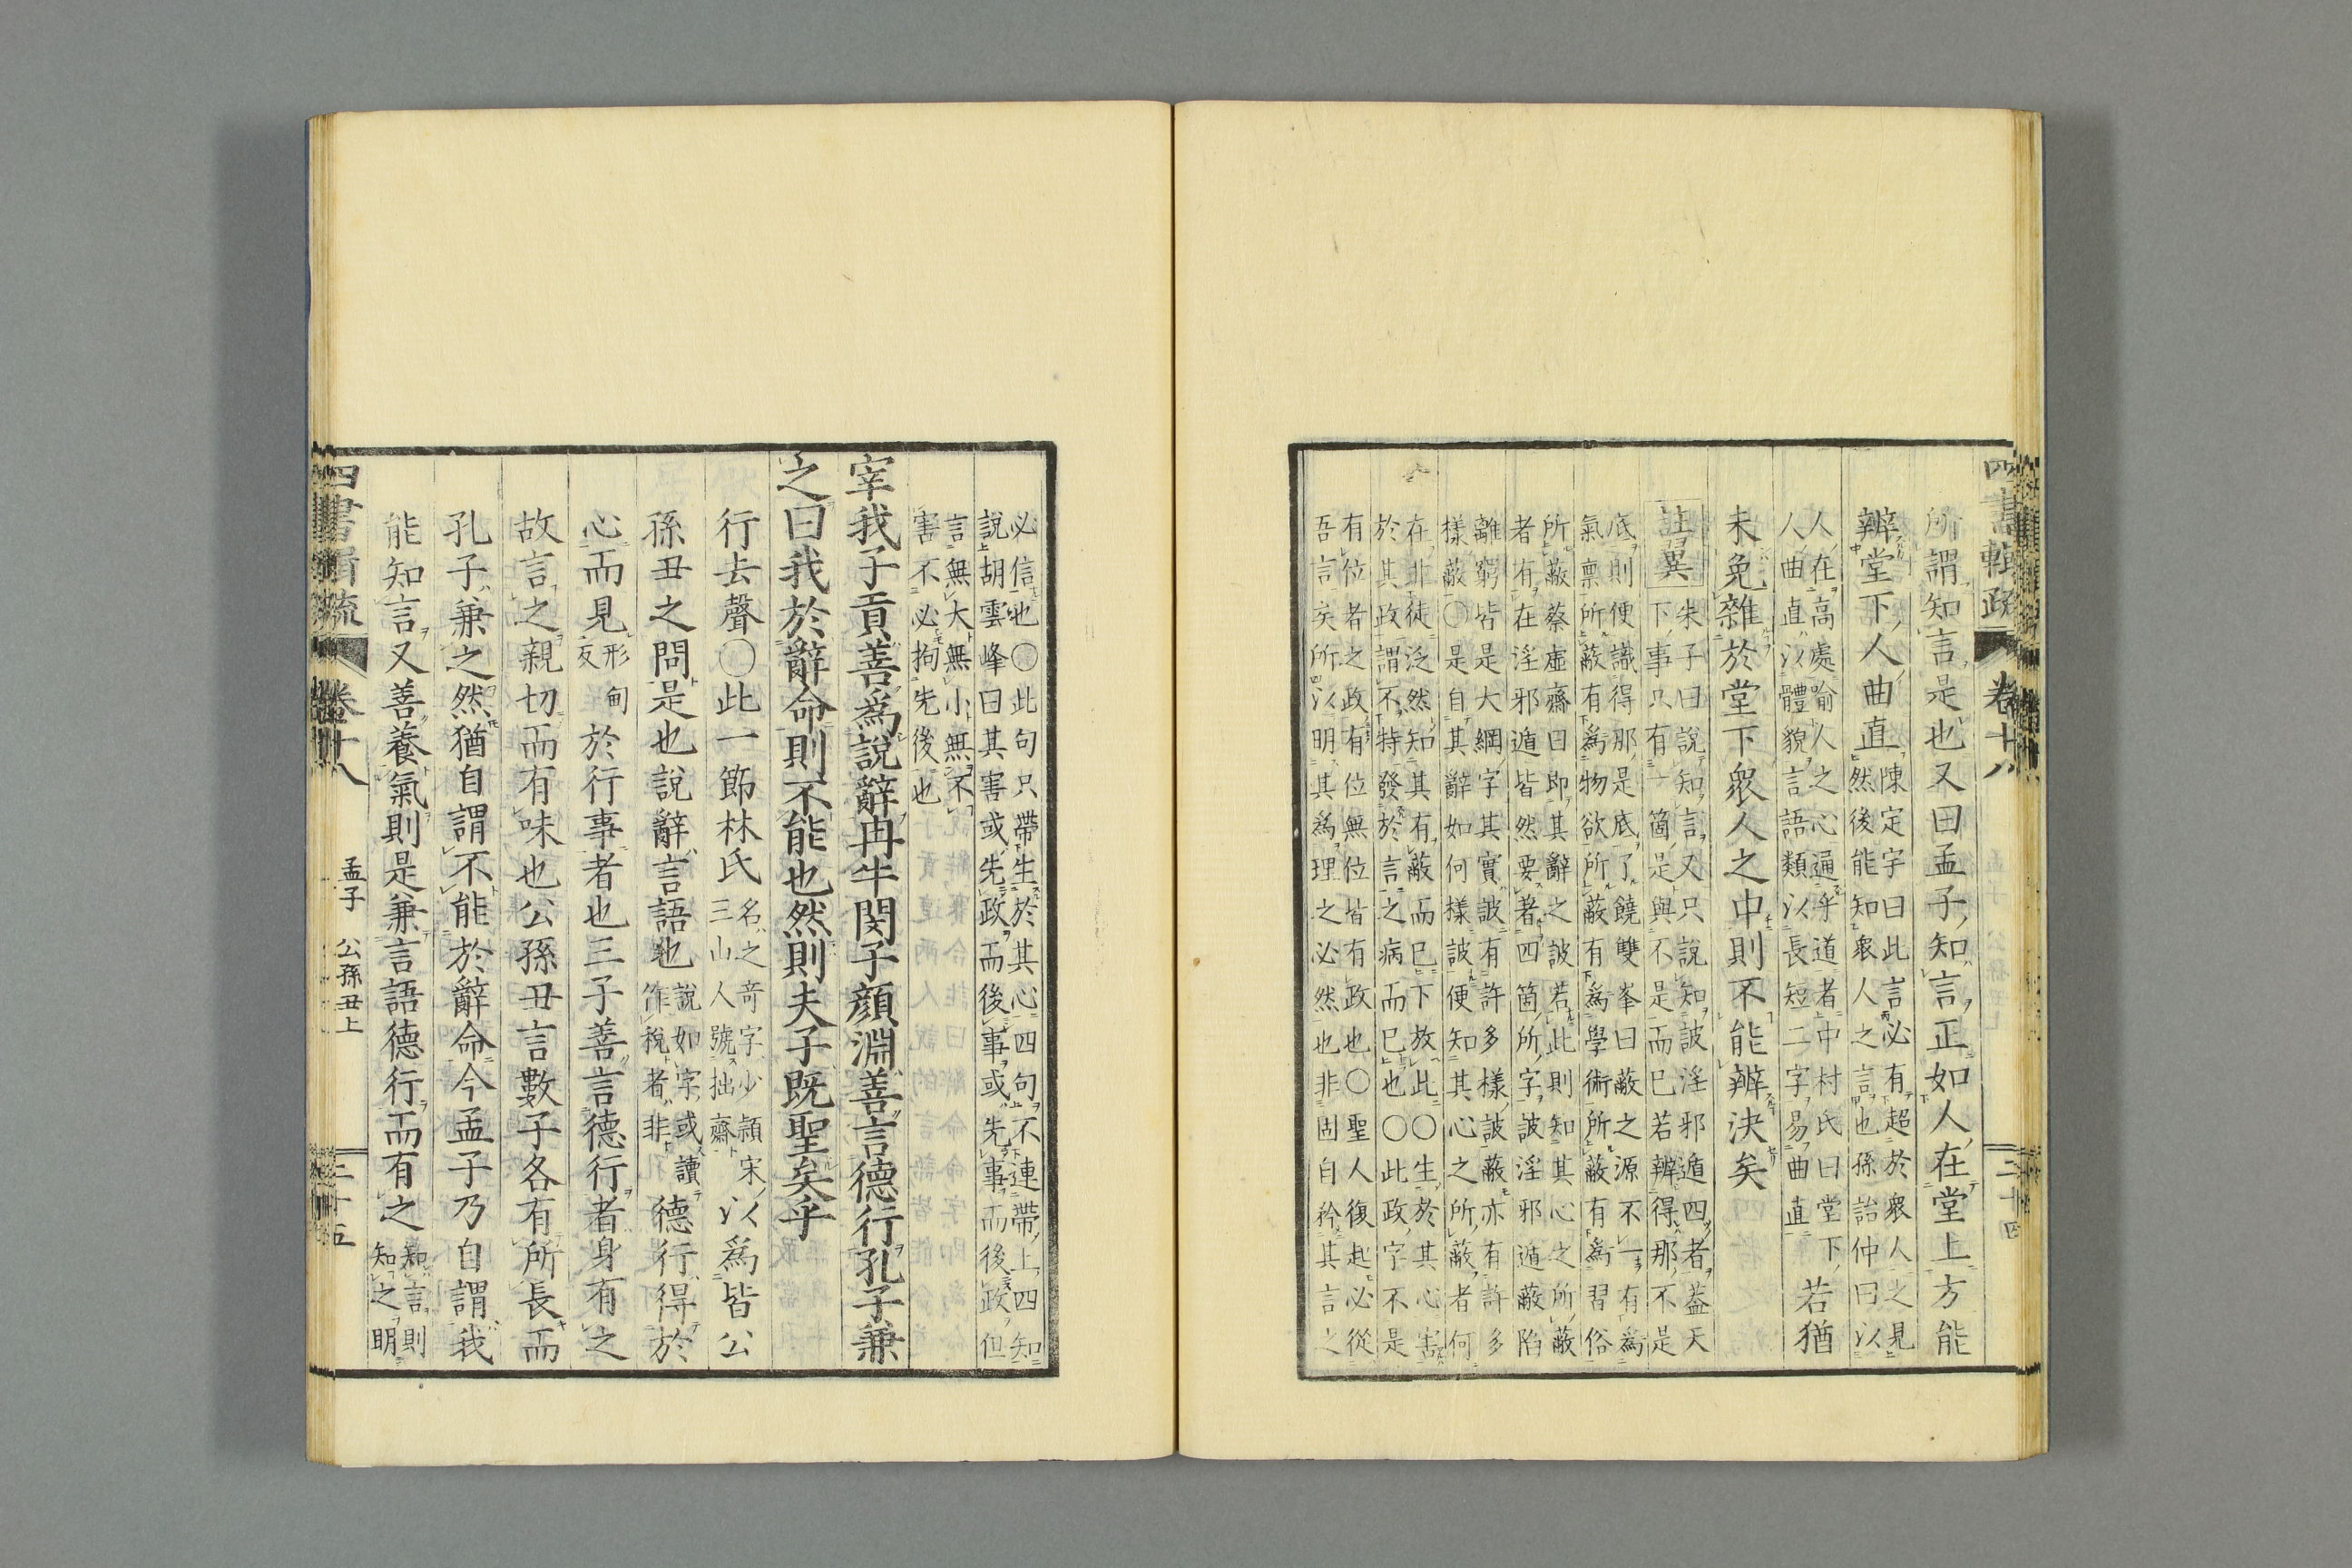 四書輯疏 卷十八 二十四
所謂知言是也又曰孟子知言正如人在堂上方能
辨堂下人曲直陳定宇曰此言必有超於衆人之見
然後能知衆人之言也孫詒仲曰以
人在高處喻人之心通乎道者中村氏曰堂下
人曲直以體貌言語類以長短二字易曲直若猶
未免雜於堂下衆人之中則不能辨決矣
朱子曰說知言又只說知詖淫邪遁四者蓋天
下事只有一箇是與不是而已若辨得那不是
底則便識得那是底了饒雙峯曰蔽之源不一有爲
氣禀所蔽有爲物欲所蔽有爲學術所蔽有爲習俗
所蔽蔡虛齋曰即其辭之詖若此則知其心之所蔽
者有在淫邪遁皆然要著四箇所字詖淫邪遁蔽陷
離窮皆是大綱字其實詖有許多樣詖蔽亦有許多
樣蔽〇是自其辭如何樣詖便知其心之所蔽者何
在非徒泛然知其有蔽而已下放此〇生於其心害
於其政謂不特發於言之病而已也〇此政字不是
有位者之政有位無位皆有政也〇聖人復起必從
吾言矣所以明其爲理之必然也非固自矜其言之
必信也〇此句只帶生於其心四句不連帶上四知
說胡雲峰曰其害或先政而後事或先事而後政但
言無大無小無不
害不必拘先後也
宰我子貢善爲說辭冉牛閔子顏淵善言德行孔子兼
之曰我於辭命則不能也然則夫子既聖矣乎
行去聲〇此一節林氏名之奇字少穎宋
三山人號拙齋以爲皆公
孫丑之問是也說辭言語也說如字或讀
作稅者非德行得於
心而見形甸
反於行事者也三子善言德行者身有之
故言之親切而有味也公孫丑言數子各有所長而
孔子兼之然猶自謂不能於辭命今孟子乃自謂我
能知言又善養氣則是兼言語德行而有之知言則
知之明
四書輯疏 卷十八 孟子 公孫丑上 二十五